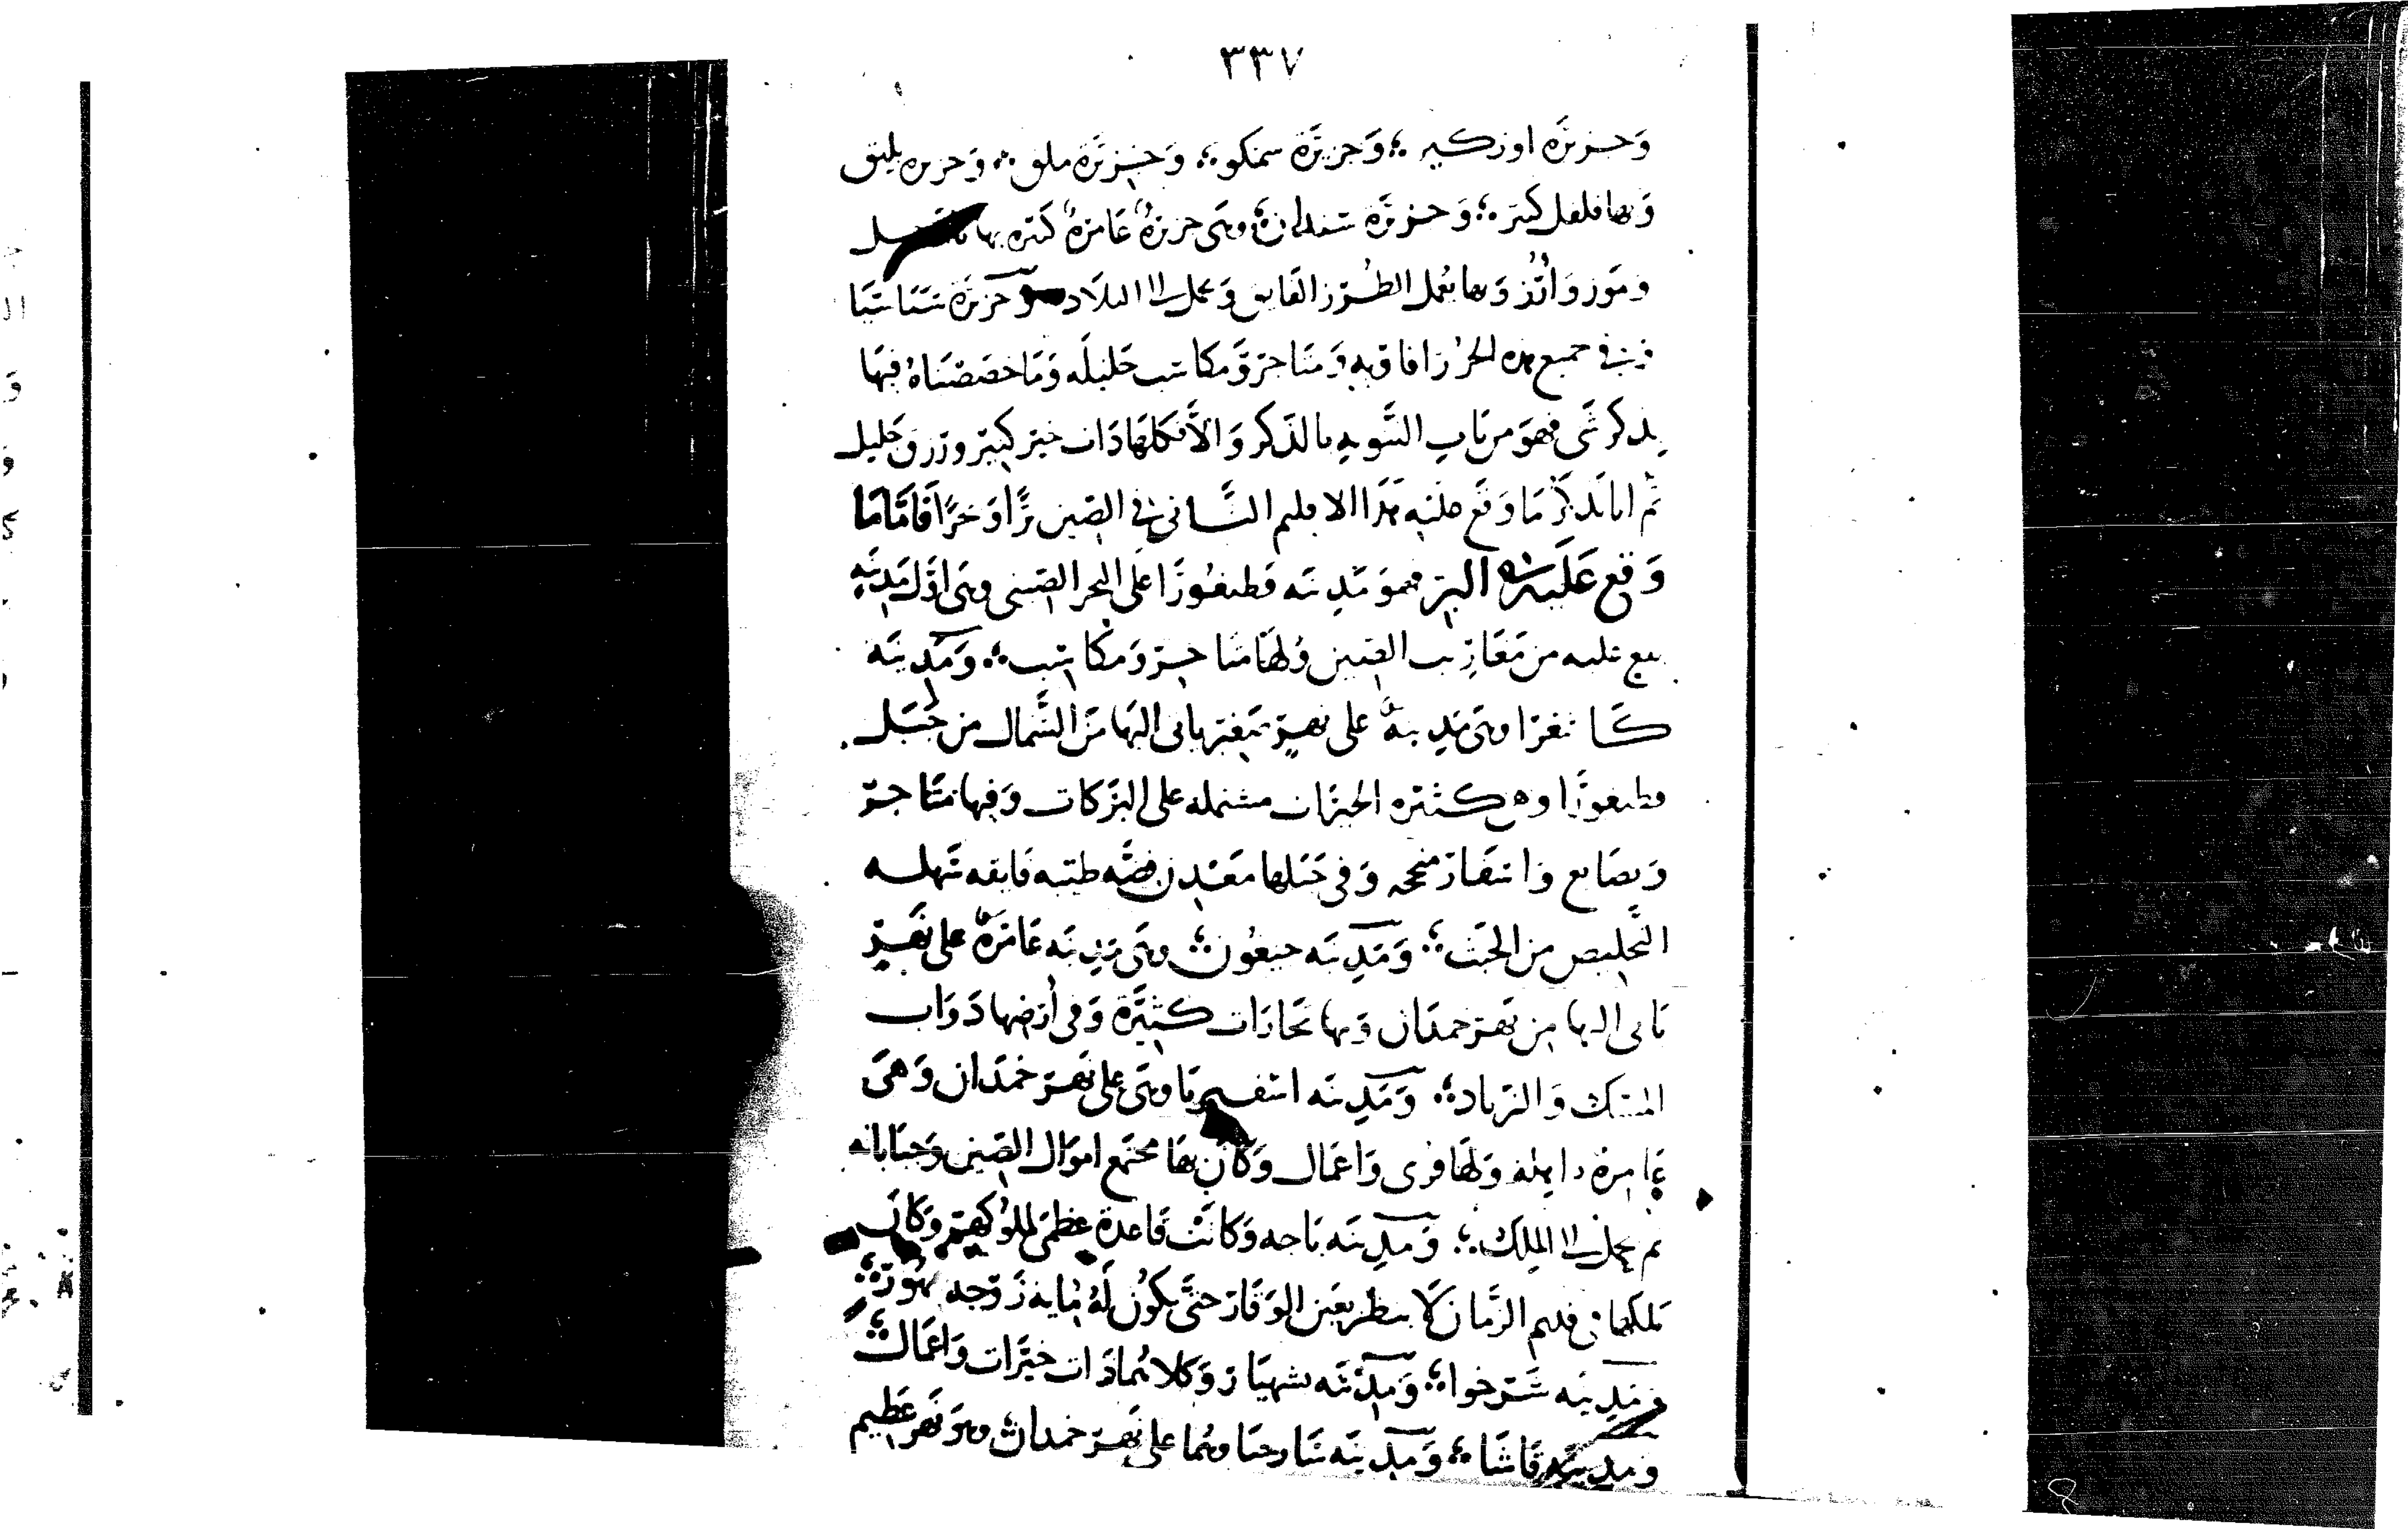 ٣٣٧
وَجزيرَة اوزكيه ؛ وَجزيرَة سمنكو ؛ وَجزيرَة ملق ؛ وَجزيره بليق
وَبها فلفل كثير ؛ وَجزيرَة سندان ؛ وهى جزيرة عَامرة كثيره بها
ومَوز وَأرز وَبها يعمل الطرز الفايق وَيحمل الى البلاد وَجزيرَة
فى جميع هذه الجزر افاويه وَمتاجر وَمكاسب جليله وَمَا خصصناهُ فيها
بذكر شى فهوَ من باب التنويه بالذكر وَالا فكلها ذات خير كثير ورزق جليل
ثم انا نذكر مَا وَقع عليه هذا الاقليم الثانى فى الصين برًا وَبحرًا فامّا ما
وَقع عَليه البر فهوَ مَدينه قطيغورَا على البحر الصينى وهى اوّل مَدينه
يقع عليه من مَغارب الصين وَلها متاجر وَمكاسب ؛ وَمَدينَه
كَاتغرا وهى مَدينة على نهر صغير ياتى اليها من الشمال من جَبل
قطيغورَا وهى كثيره الخيرات مشتمله على البركات وَفيها متاجر
وَبضايع وَاسفار منجحه وَفى جبلها معدن فضّه طيبه فايقه سَهله
التخليص من الخبث ؛ وَمَدينَه خيغون ؛ وهى مَدينَه عَامرَة على نهر
يَاتى اليها من نهر خمدَان وَبها تجارَات كثيرَة وَفى أرضها دَوَاب
المسك وَالزباد ؛ وَمَدينَه اسفيريَا وهى على نهر خمدَان وَهىَ
عَامرة داهله وَلها قرى وَاعمَال وَكان بها مجتمع اموَال الصين وَجباياته
ثم يحمل الى الملك ؛ وَمَدينَه باجه وَكانَت قاعدة عظمى لملوكهم وَكانَ
مَلكها فى قديم الزمان لا ينظر بعين الوَقار حتى يكون لهُ مايه زَوجه بمهُور ؛
وَمدينه شَرخوا ؛ وَمَدينَه بشهيَار وَكلاهما ذَات خيرَات وَاعمال ؛
وَمدينه قاشا ؛ وَمَدينَه سَارحنا وهما على نهر خمدان ؛ وهوَ نهر عَظيم